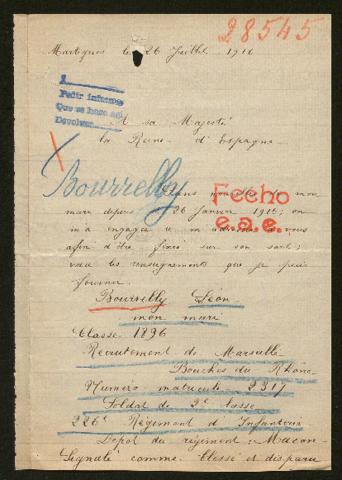 28545
Martigues le 26 Juillet 1916
1
Pedir informes
Que se hace aqi
Devolver
A sa Majesté
la Reine d'Espagne
Bourrelly
Sans nouvelle de mon
mari depuis 26 Janvier 1916; on
Fecho
e.a.e.
m'a engagée à m'adresser à vous
afin d'être fixée sur son sort;
voici les renseignements que je puis
fournir
Bourrelly Léon
mon mari
Classe 1896
Recrutement de Marseille
Bouches du Rhône
Numéro matricule 3317
Soldat de 2e classe
226e Régiment d'Infanterie
Dépot du régiment: Macon
Signalé comme blessé et disparu